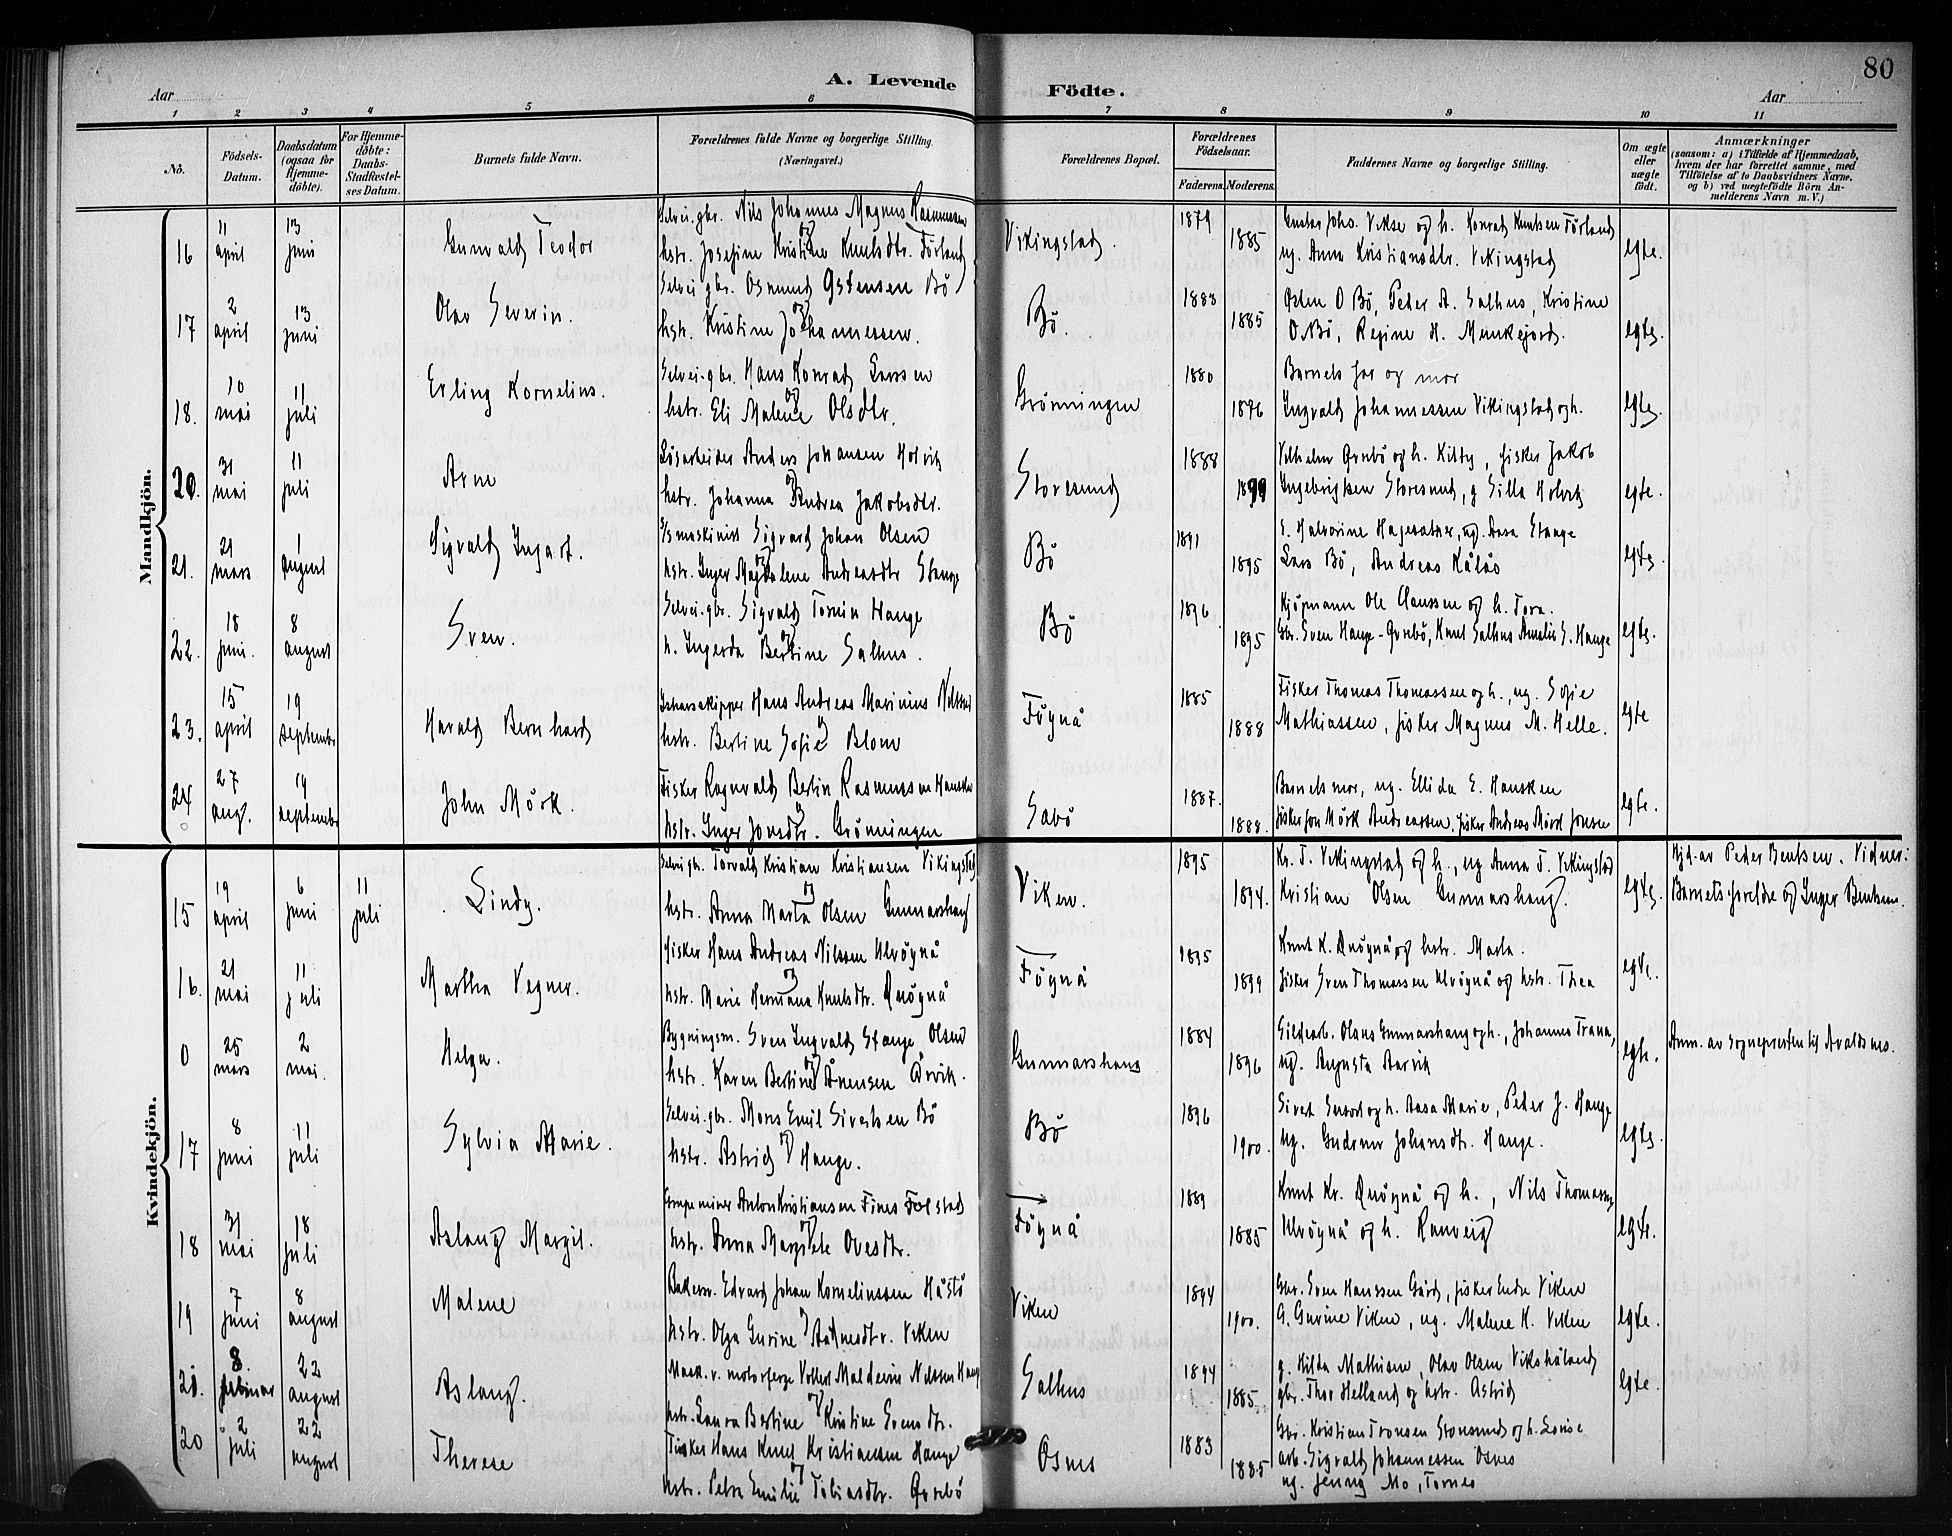 80
A. Levende Födte.
Aar
Aar
1 2 3 4 5 6 7 8 9 10 11
No.
Födsels-Datum.
Daabsdatum (ogsaa for Hjemme-döbte).
For Hjemme-döbte: Daabs-Stadfæstel-ses Datum.
Barnets fulde Navn.
Forældrenes fulde Navne og borgerlige Stilling. (Næringsvei.)
Forældrenes Bopæl.
Forældrenes Födselsaar.
Faderens. Moderens.
Faddernes Navne og borgerlige Stilling.
Om ægte eller uægte födt.
Anmærkninger
(saasom: a) i Tilfælde af Hjemmedaab, hvem der har forrettet samme, med Tilföielse af to Daabsvidners Navne, og b) ved uægtefödte Börn An-melderens Navn m. V.)
Mandkjön.
16 11 april 13 juni Gunvald Teodor
Selvei.gbr. Nils Johannes Magnus Rasmussen
og
hstr. Josefine Kristine Knutsdtr. Förland
Vikingstad. 1879 1885
Gustav Johs. Vikse og h. Konrad Knutsen Förland
ug. Anna Kristiansdtr. Vikingstad
egte.
17 2 april 13 juni Olav Severin.
Selvei gbr. Osmund Østensen Bö
og
hstr. Kristine Johannessen.
Bö. 1883 1885
Østen O Bö, Peder A. Salhus, Kristine
O. Bö, Regine H. Munkejord.
egte.
18. 10 mai 11 juli Erling Kornelius.
Selvei.gbr. Hans Konrad Larsen
og
hstr. Eli Malene Olsdtr.
Grönningen 1880 1876
Barnets far og mor
Ingvald Johannessen Vikingstad og h.
egte.
20. 31 mai 11 juli Arne
Lösarbeider Anders Johansen Holvik
og
hstr. Johanna Andrea Jakobsdtr.
Storesund 1888 1899
Vilhelm Qvrebö og h. Kitty, fisker Jakob
Ingebrigtsen Storesund, g Silla Holvik
egte.
21. 21 mars 1 august Sigvald Ingart.
S/s maskinist Sigvard Johan Olsen
og
hstr. Inger Magdalene Andreasdtr Stange
Bö 1891 1895
E. Halvorine Hagesæter, ug. Aasa Stange
Lars Bö, Andreas Kålås
egte.
22. 18 juni. 8 august Sven.
Selvei.gbr. Sigvald Tomin Hauge
og
h. Ingerda Bertine Salhus.
Bö 1896 1895
Kjöpmann Ole Claussen og h. Tora.
Gbr. Sven Hauge-Qvrebö, Knut Salhus Amalie S. Hauge
egte.
23. 15 april 19 september Harald Bernhard
Hans Andreas Marinius
og
hstr. Bertine Sofie Blom
Föynå 1885 1888
Fisker Thomas Thomassen og h., ug. Sofie
Mathiassen, fisker Magnus M. Helle.
egte
24 27 aug. 19 september John Mörk.
Fisker Ragnvald Bertin Rasmussen Hausken
og
hstr. Inger Jonsdtr. Grönningen
Sabö 1887. 1888.
Barnets mor, ug. Ellida E. Hausken
fisker Jon Mörk Andreassen, fisker Andreas Mörk Jonsen
egte.
Kvindekjön.
15 19 april 6 juni 11 juli Lindy.
Selvei gbr. Torvald Kristian Kristiansen Vikingstad
og
hstr. Anna Marta Olsen Gunnarshaug
Viken. 1895 1894.
Kr. T. Vikingstad og h., ug Anna T. Vikingstad
Kristian Olsen Gunnarshaug.
egte.
Hjd. av Peder Bentsen. Vidner:
Barnets forelde og Inger Bentsen.
16. 21 mai 11 juli Martha Vegner.
fisker Hans Andreas Nilssen Ulvöynå
og
hstr. Marie Hermana Knutsdtr. Qvöynå
Föynå 1895 1899
Knut K. Qvöynå og hstr. Marta.
fisker Sven Thomassen Ulvöynå og hstr. Thea
egte.
0 25 mars 2 mai. Helga.
Bygningsm. Sven Ingvald Stange Olsen
og
hstr. Karen Bertine Ånensen Qrvik.
Gunnarshaug 1884 1896
Sildearb. Olaus Gunnarshaug og h., Johannes Trana,
ug. Augusta Aarvik
egte.
Anm. av sogneprесten til Avaldsnes.
17 8 juni 11 juli Sylvia Marie.
Selvei.gbr. Mons Emil Sivertsen Bö
og
hstr. Astrid Hauge.
Bö 1896 1900.
Sivert og h. Aasa Marie, Peder J. Hauge
ug. Gudrun Johansdtr. Hauge.
egte.
18 31 mai 18 juli Aslaug Margit.
Anton Kristiansen Fines
og
hstr. Anna Margrete Ovesdtr.
Föynå 1889 1885
Knut Kr. Qvöynå og h., Nils Thomassen
Ulvöynå og h. Ranveig
egte.
19 7 juni 8 august Malene
Bakersv. Edvard Johan Kornelinssen Håstö
og
hstr. Olga Gurine Aanensdtr. Viken
Viken 1894 1900.
Gbr. Sven Hanssen Gård, fisker Endre Viken
G. Gurine Viken, ug. Malene K. Viken
egte.
20. 8. februar 22 august Aslaug.
Mask. v. motorferge Vollert Malderin Nilssen Hauge
og
hstr. Laura Bertine Kristine Svensdtr.
Salhus 1894 1885
g. Hilda Mathisen, Olav Olsen Vikshåland
gbr. Thor Helland og hstr. Astrid
egte.
20 2 juli 22 august Therese
Fisker Hans Knut Kristiansen Hauge
og
hstr. Petra Emilie Tobiasdtr. Qvrebö
Osnes 1883 1885
Gbr. Kristian Tronsen Storesund og h. Lovise
arb. Sigvald Johannessen Osnes
ug. Jenny Mo, Tornes